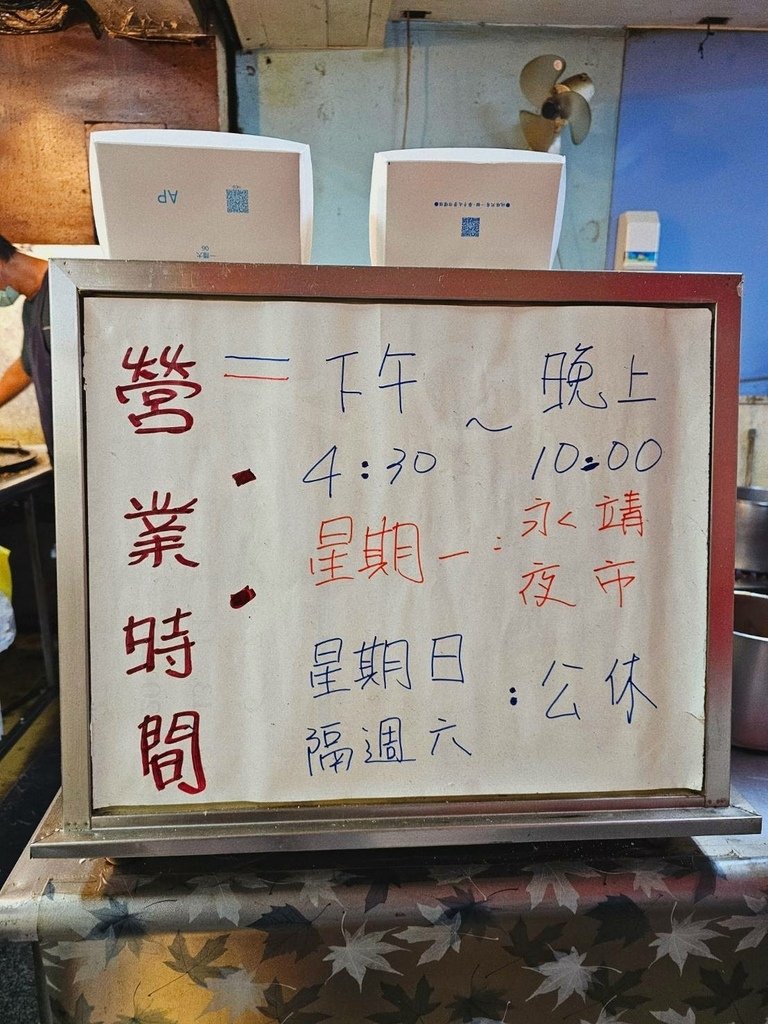 AP
營業時間：
二 下午 ~ 晚上
4:30 10:00
星期一：永靖夜市
星期日
隔週六
：公休